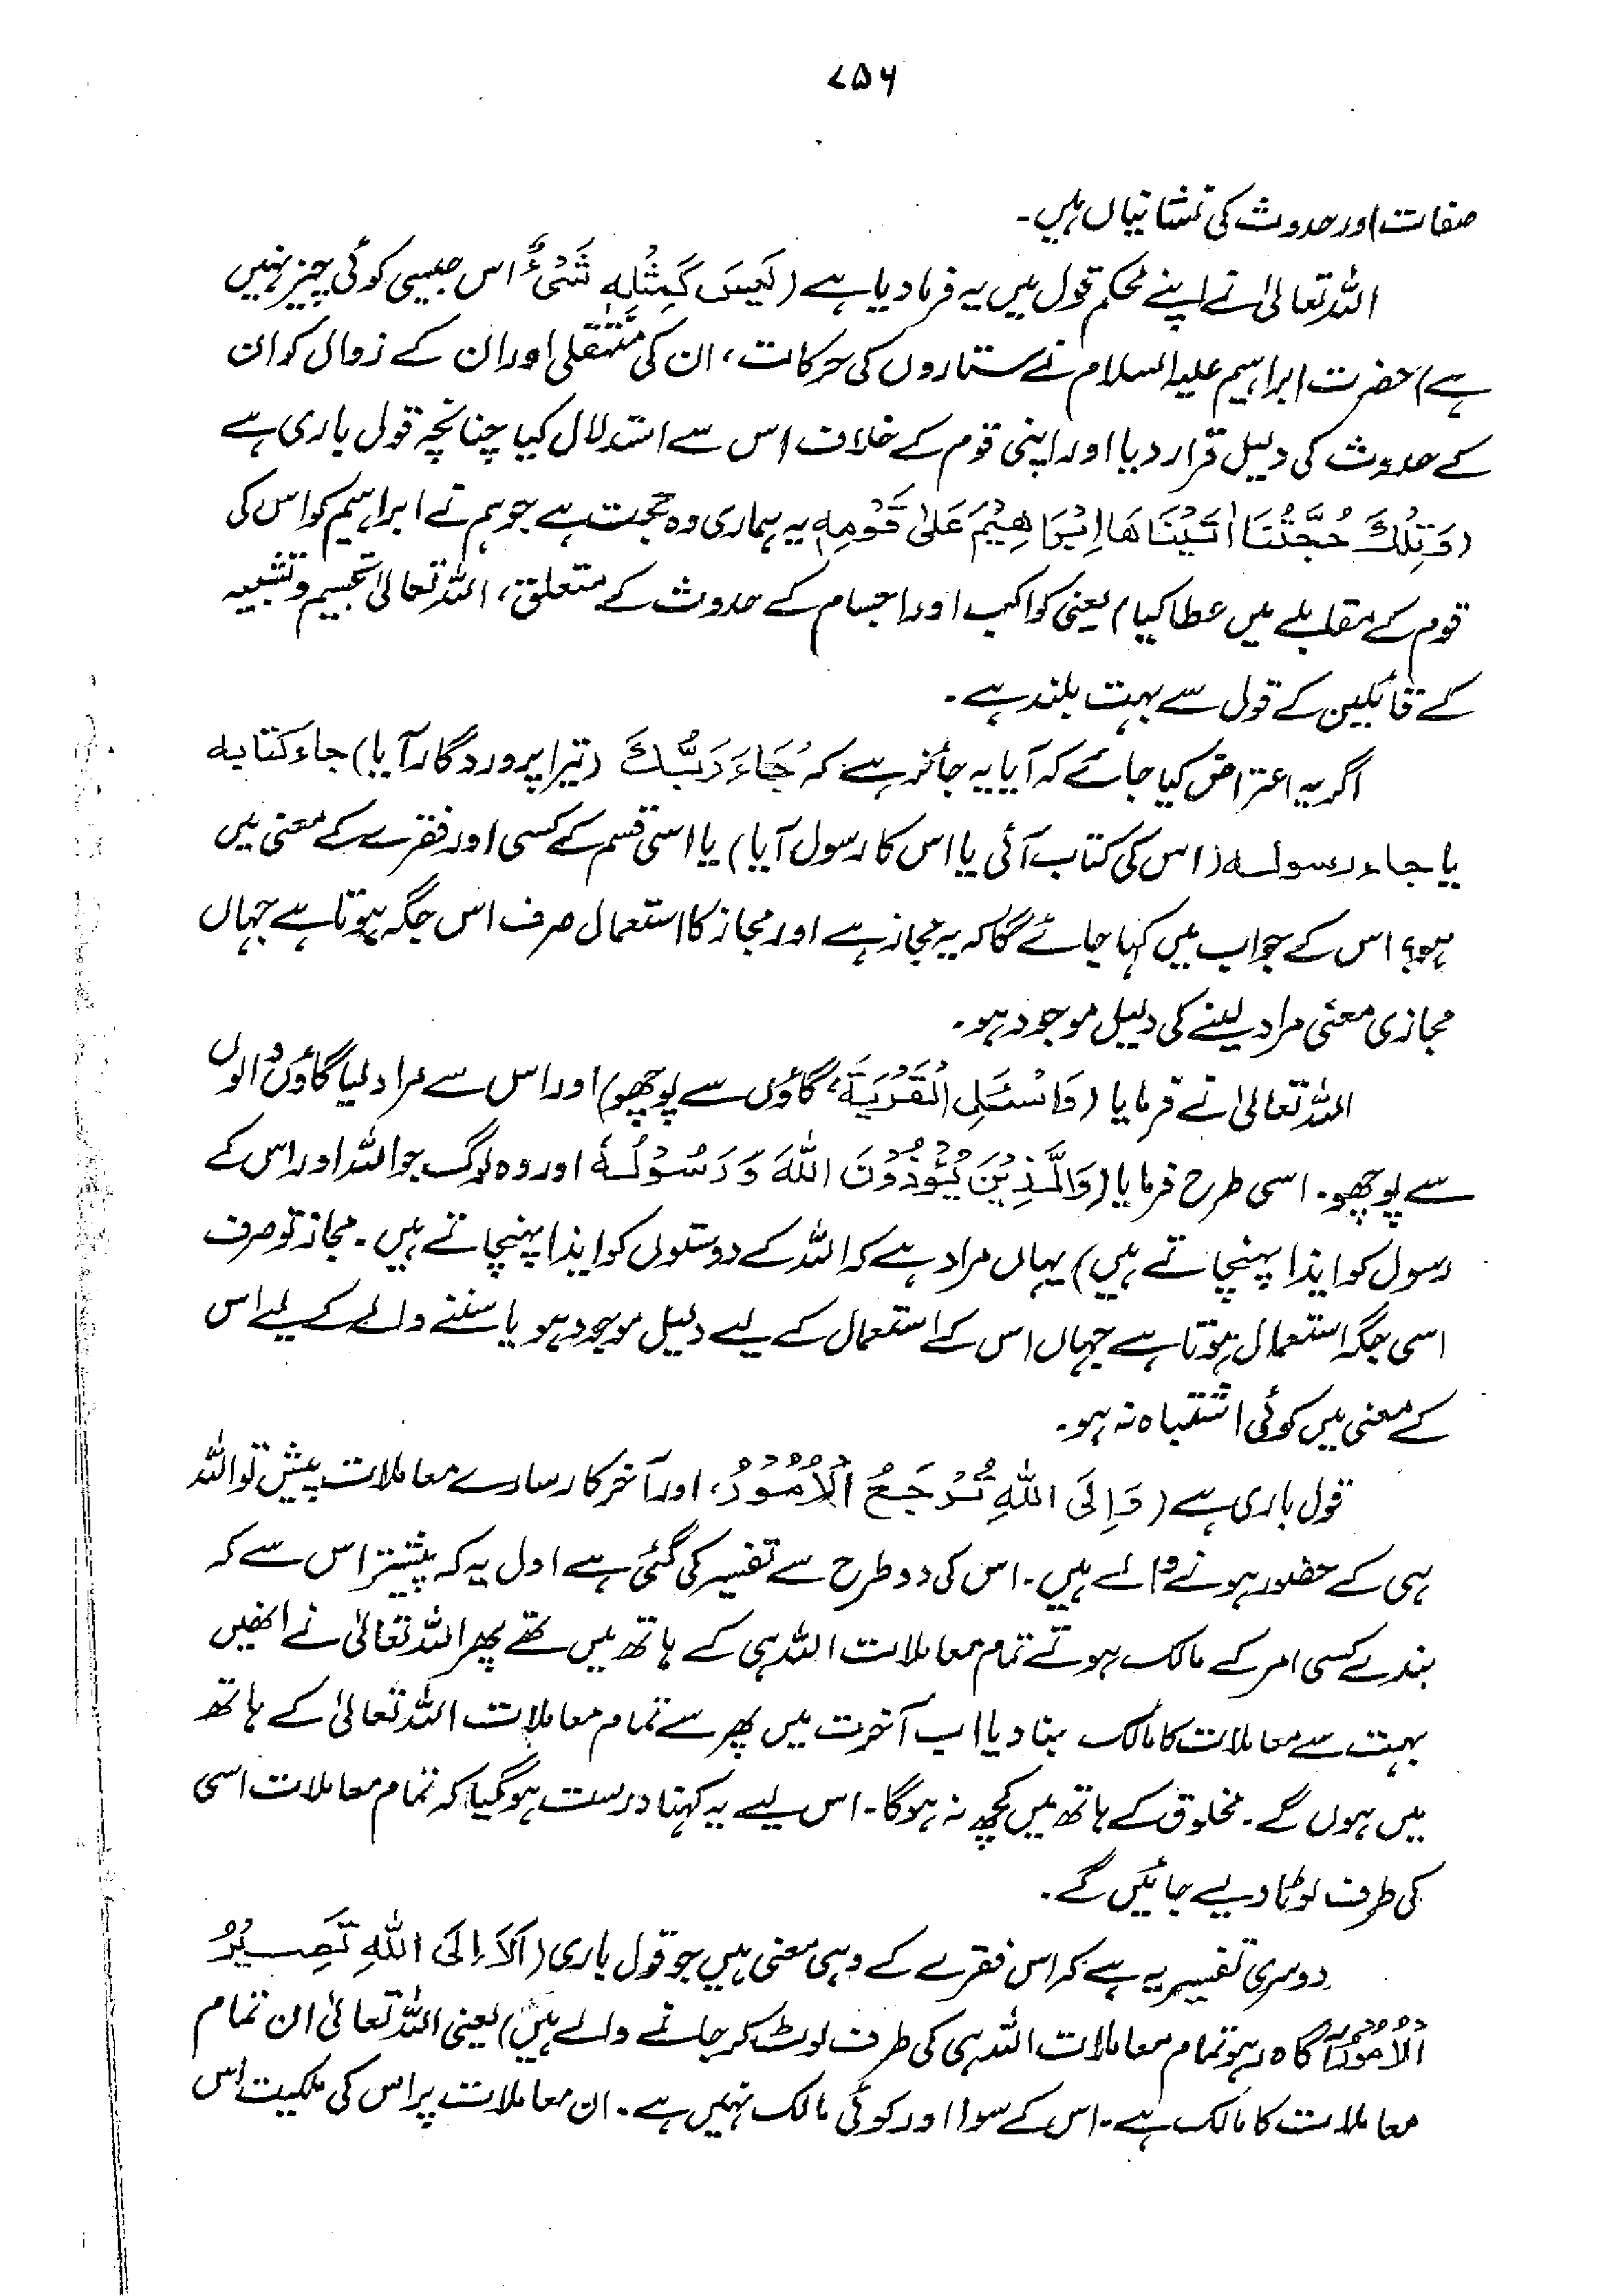 ۷۵۶
صفات اور حدوث کی نشانیاں ہیں۔
اللہ تعالیٰ نے اپنے محکم قول میں یہ فرما دیا ہے (لَیْسَ کَمِثْلِہٖ شَیْءٌ اس جیسی کوئی چیز نہیں
ہے) حضرت ابراہیم علیہ السلام نے ستاروں کی حرکات، ان کی منتقلی اور ان کے زوال کو ان
کے حدوث کی دلیل قرار دیا اور اپنی قوم کے خلاف اس سے استدلال کیا چنانچہ قول باری ہے
(وَتِلْکَ حُجَّتُنَا اٰتَیْنَاھَا اِبْرَاھِیْمَ عَلٰی قَوْمِہٖ یہ ہماری وہ حجت ہے جو ہم نے ابراہیم کو اس کی
قوم کے مقابلے میں عطا کیا) یعنی کواکب اور اجسام کے حدوث کے متعلق، اللہ تعالیٰ تجسیم و تشبیہ
کے قائلین کے قول سے بہت بلند ہے۔
اگر یہ اعتراض کیا جائے کہ آیا یہ جائز ہے کہ جَاءَ رَبُّکَ (تیرا پروردگار آیا) جاء کتابہ
یا جاء رسولہ (اس کی کتاب آئی یا اس کا رسول آیا) یا اسی قسم کے کسی اور فقرے کے معنی میں
ہو؟ اس کے جواب میں کہا جائے گا کہ یہ مجاز ہے اور مجاز کا استعمال صرف اس جگہ ہوتا ہے جہاں
مجازی معنی مراد لینے کی دلیل موجود ہو۔
اللہ تعالیٰ نے فرمایا (وَاسْئَلِ الْقَرْیَۃَ، گاؤں سے پوچھو) اور اس سے مراد لیا گاؤں والوں
سے پوچھو۔ اسی طرح فرمایا (وَالَّذِیْنَ یُؤْذُوْنَ اللّٰہَ وَرَسُوْلَہٗ اور وہ لوگ جو اللہ اور اس کے
رسول کو ایذا پہنچاتے ہیں) یہاں مراد ہے کہ اللہ کے دوستوں کو ایذا پہنچاتے ہیں۔ مجاز تو صرف
اسی جگہ استعمال ہوتا ہے جہاں اس کے استعمال کے لیے دلیل موجود ہو یا سننے والے کے لیے اس
کے معنی میں کوئی اشتباہ نہ ہو۔
قول باری ہے (وَاِلَی اللّٰہِ تُرْجَعُ الْاُمُوْرُ، اور آخر کار سارے معاملات پیش تو اللہ
ہی کے حضور ہونے والے ہیں۔ اس کی دو طرح سے تفسیر کی گئی ہے اول یہ کہ پیشتر اس سے کہ
بندے کسی امر کے مالک ہوتے تمام معاملات اللہ ہی کے ہاتھ میں تھے پھر اللہ تعالیٰ نے انھیں
بہت سے معاملات کا مالک بنا دیا اب آخرت میں پھر سے تمام معاملات اللہ تعالیٰ کے ہاتھ
میں ہوں گے۔ مخلوق کے ہاتھ میں کچھ نہ ہوگا۔ اس لیے یہ کہنا درست ہوگیا کہ تمام معاملات اسی
کی طرف لوٹا دیے جائیں گے۔
دوسری تفسیر یہ ہے کہ اس فقرے کے وہی معنی ہیں جو قول باری (اَلَا اِلَی اللّٰہِ تَصِیْرُ
الْاُمُوْرُ آگاہ رہو تمام معاملات اللہ ہی کی طرف لوٹ کر جانے والے ہیں) یعنی اللہ تعالیٰ ان تمام
معاملات کا مالک ہے۔ اس کے سوا اور کوئی مالک نہیں ہے۔ ان معاملات پر اس کی ملکیت اس